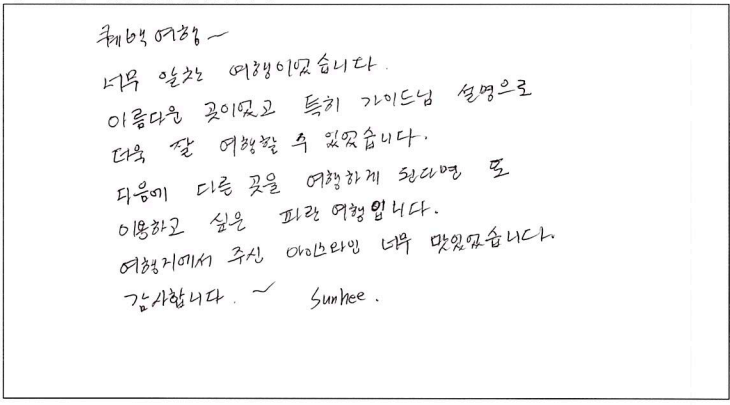 퀘백여행~
너무 알찬 여행이었습니다.
아름다운 곳이었고 특히 가이드님 설명으로
더욱 잘 여행할 수 있었습니다.
다음에 다른 곳을 여행하게 된다면 또
이용하고 싶은 파란여행입니다.
여행지에서 주신 아이스와인 너무 맛있었습니다.
감사합니다. ~ Sunhee.